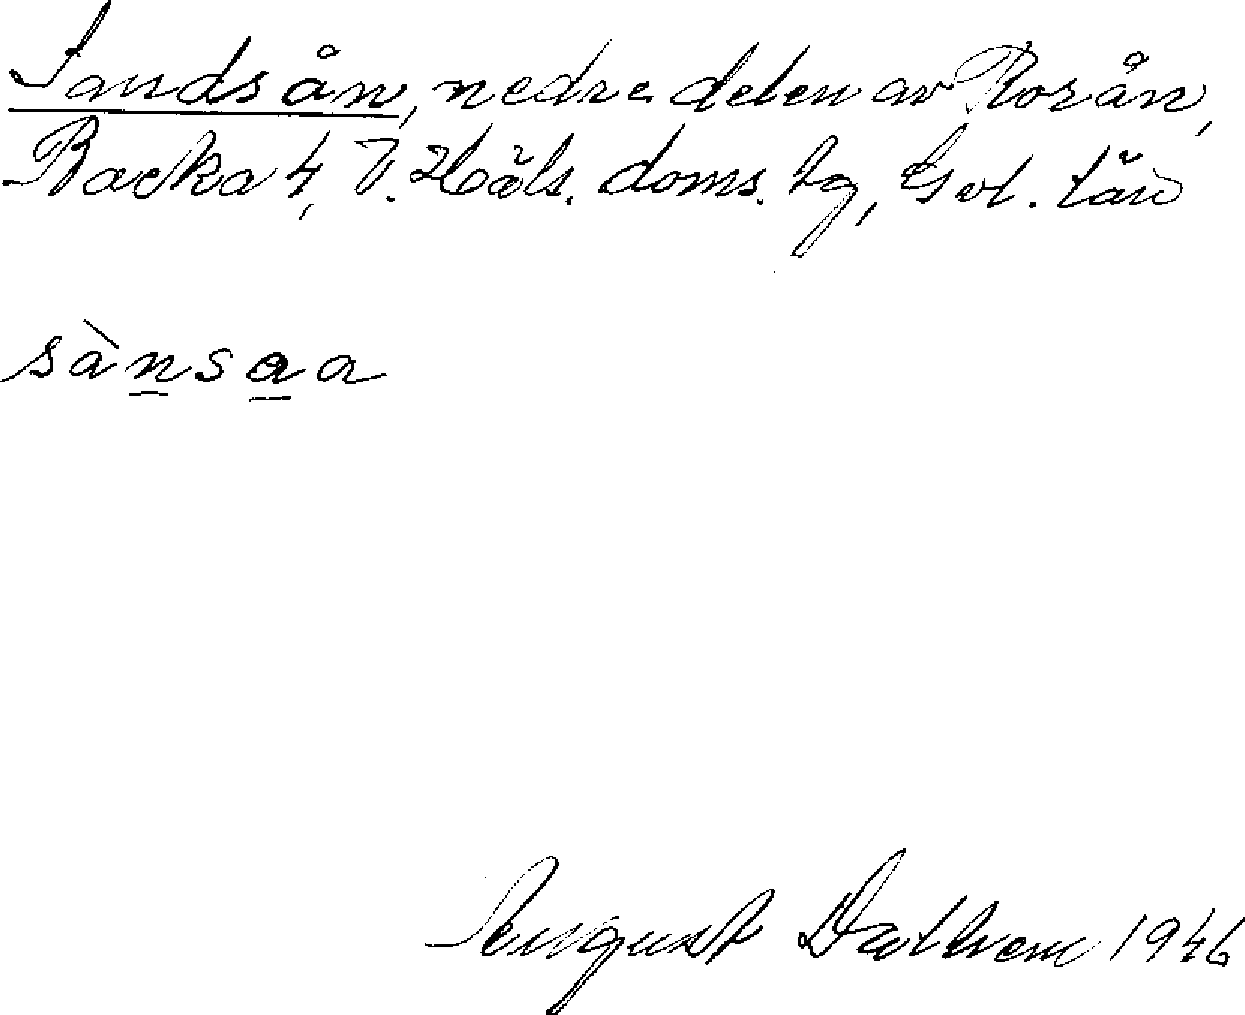 Sandsån, nedre delen av Rosån,
Backa 4, V. Häls. doms. tg, Gvl. län
sànsaa
August Dathem 1946